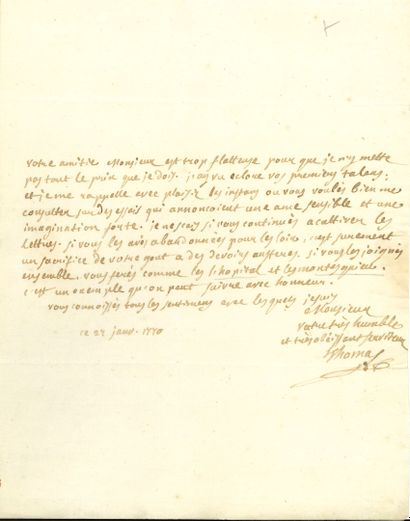 votre amitié Monsieur est trop flatteuse pour que je n'y mette
pas tout le prix que je dois. j'ay vu eclore vos premiers talens,
et je me rappelle avec plaisir les instans ou vous vouliés bien me
consulter sur des essais qui annoncoient une ame sensible et une
imagination forte. je ne scais si vous continués a cultiver les
lettres. si vous les avés abandonnées pour les loix, c'est surement
un sacrifice de votre gout a des devoirs austeres. si vous les joignés
ensemble, vous ferés comme les l'hopital et les montesquieu.
c'est un exemple qu'on peut suivre avec honneur.
vous connoissés tous les sentimens avec lesquels je suis
Monsieur
votre très humble
et très obéissant serviteur
Thomas
ce 27 janv. 1770